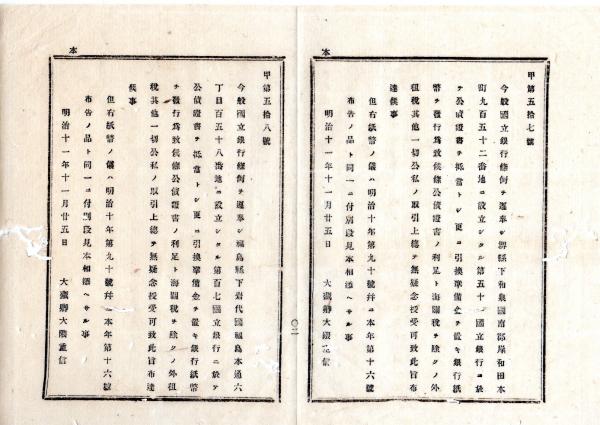 本
甲第五拾七號
今般國立銀行條例ヲ遵奉シ堺縣下和泉國南郡岸和田本
町九百五十二番地ニ設立シタル第五十一國立銀行ニ於
テ公債證書ヲ抵當トシ更ニ引換準備金ヲ置キ銀行紙
幣ヲ發行爲致候條公債證書ノ利足ト海關稅ヲ除クノ外
租稅其他一切公私ノ取引上總テ無疑念授受可致此旨布
達候事
但右紙幣ノ儀ハ明治十年第九十號幷ニ本年第十六號
布告ノ品ト同一ニ付別段見本相添ヘサル事
明治十一年十一月廿五日
大藏卿大隈重信
本
甲第五拾八號
今般國立銀行條例ヲ遵奉シ福島縣下岩代國福島本通六
丁目百五十八番地ニ設立シタル第百七國立銀行ニ於テ
公債證書ヲ抵當トシ更ニ引換準備金ヲ置キ銀行紙幣
ヲ發行爲致候條公債證書ノ利足ト海關稅ヲ除クノ外租
稅其他一切公私ノ取引上總テ無疑念授受可致此旨布達
候事
但右紙幣ノ儀ハ明治十年第九十號幷ニ本年第十六號
布告ノ品ト同一ニ付別段見本相添ヘサル事
明治十一年十一月廿五日
大藏卿大隈重信